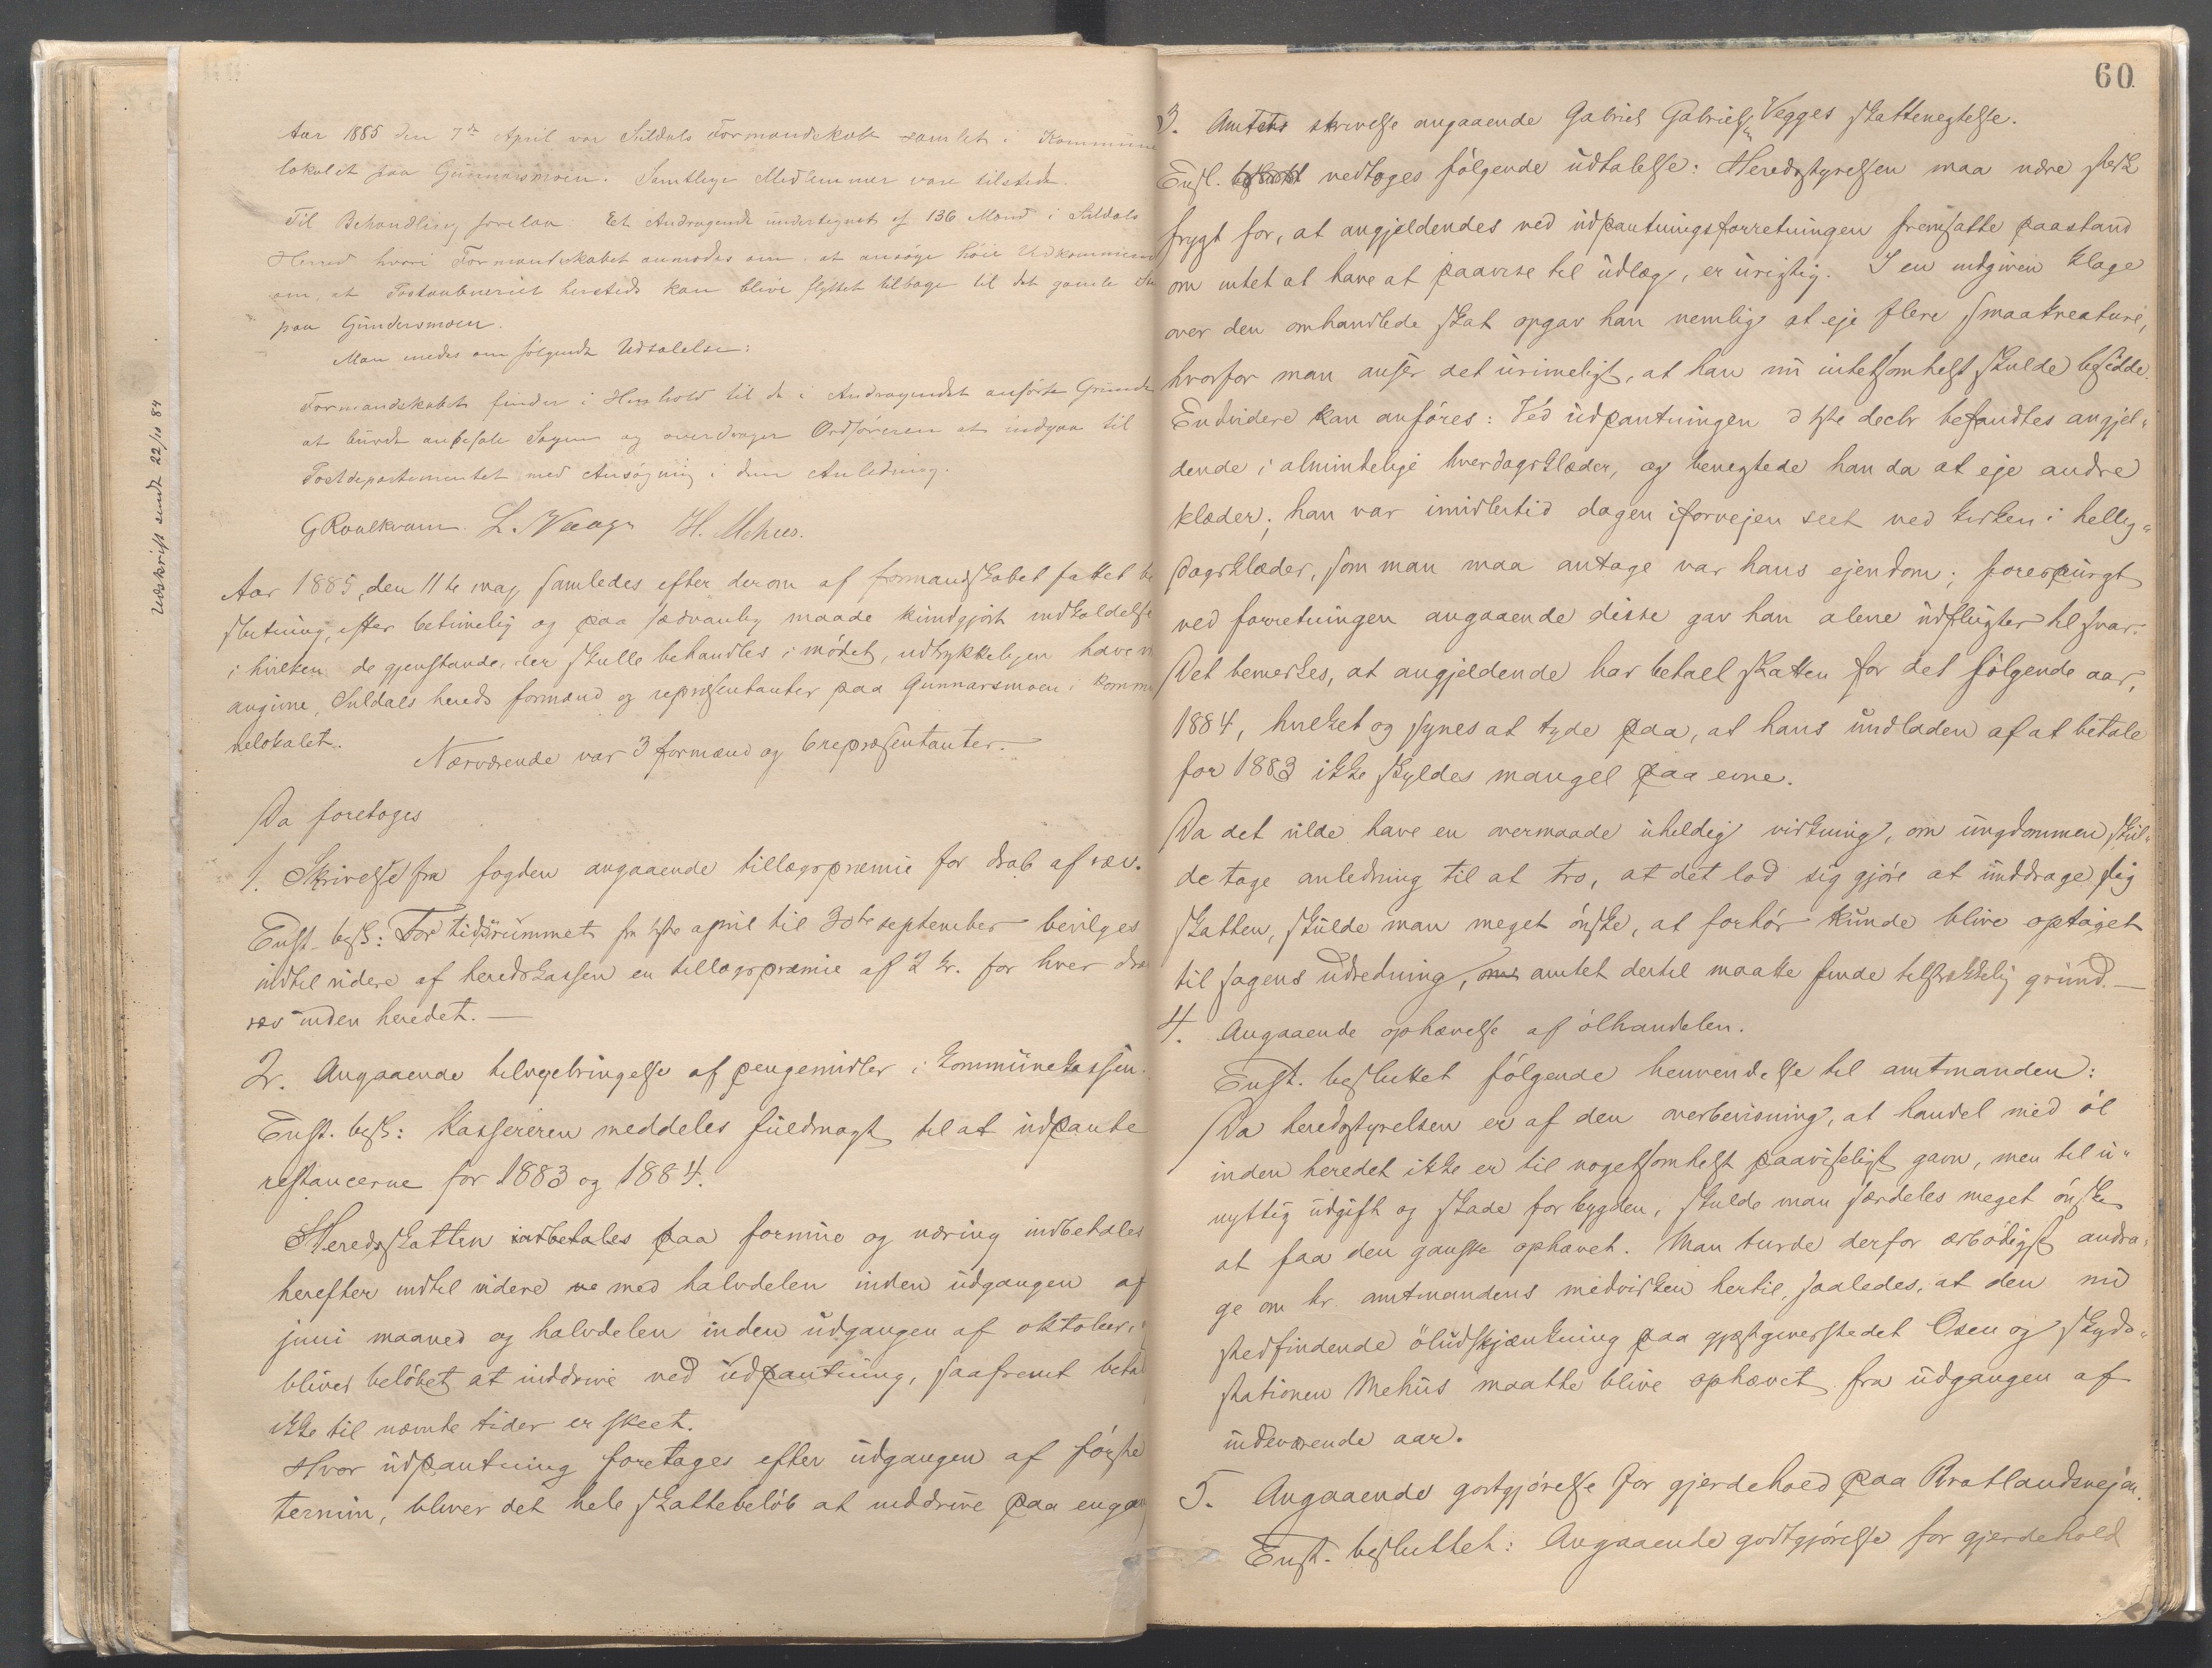 Udskrift sendt 22/10 84
Aar 1885 den 7de April var Suldals Formandskab samlet i Kommune
lokalet paa Gunnarsmoen. Samtlige Medlemmer vare tilstede.
Til Behandling forelaa Et Andragende undertegnet af 136 Mænd i Suldals
Herred hvori Formandskabet anmodes om at ansøge høie Vedkommende
om, at Postaabneriet hersteds kan blive flyttet tilbage til det gamle
paa Gundersmoen.
Man enedes om følgende Udtalelse:
Formandskabet finder i Henhold til de i Andragendet anførte Grunde
at burde anbefale Sagen og overdrager Ordføreren at indgaa til
Postdepartementet med Ansøgning i den Anledning.
G Roalkvam. L. Vaage H. Mehus.
Aar 1885, den 11te maj samledes efter derom af formandskabet fattet be
slutning, efter betimelig og paa sædvanlig maade kundgjort indkaldelse
i hvilken de gjenstande, der skulle behandles i mødet, udtrykkeligen have v
angivne, Suldals hereds formænd og repræsentanter paa Gunnarsmoen i kommu
nelokalet.
Nærværende var 3 formænd og 6 repræsentanter.
Da foretoges
1. Skrivelse fra fogden angaaende tillægspræmie for drab af ræv.
Enst. besl: For tidsrummet fra 1ste april til 30te september bevilges
indtil videre af heredskassen en tillægspræmie af 2 kr. for hver dræ
ræv inden heredet. —
2. Angaaende tilvejebringelse af pengemidler i kommunekassen.
Enst. besl: Kassereren meddeles fuldmagt til at udpante
restancerne for 1883 og 1884.
Heredsskatten indbetales paa formue og næring indbetales
herefter indtil videre ve med halvdelen inden udgangen af
juni maaned og halvdelen inden udgangen af oktober,
bliver beløbet at inddrive ved udpantning, saafremt beta
ikke til nævnte tider er skeet.
Hvor udpantning foretages efter udgangen af første
termin, bliver det hele skattebeløb at inddrive paa engan
60
3. Amtets skrivelse angaaende Gabriel Gabrielsen Vegges skattenegtelse.
Enst. vedtoges følgende udtalelse: Heredsstyrelsen maa nære sterk
frygt for, at angjeldendes ved udpantningsforretningen fremsatte paastand
om intet at have at paavise til udlæg, er urigtig. I en indgiven klage
over den omhandlede skat opgav han nemlig at eje flere smaakreature,
hvorfor man anser det urimeligt, at han nu intetsomhelst skulde besidde.
Endvidere kan anføres: Ved udpantningen d 1ste decbr befandtes angjel-
dende i almindelige hverdagsklæder, og benegtede han da at eje andre
klæder; han var imidlertid dagen iforvejen seet ved kirken i hellig-
dagsklæder, som man maa antage var hans ejendom; forespurgt
ved forretningen angaaende disse gav han alene udflugter til svar.
Det bemerkes, at angjeldende har betalt skatten for det følgende aar,
1884, hvilket og synes at tyde paa, at hans undladen af at betale
for 1883 ikke skyldes mangel paa evne.
Da det vilde have en overmaade uheldig virkning, om ungdommen skul-
de tage anledning til at tro, at det lod sig gjøre at unddrage sig
skatten, skulde man meget ønske, at forhør kunde blive optaget
til sagens udredning, om amtet dertil maatte finde tilstrækkelig grund. —
4. Angaaende ophævelse af ølhandelen.
Enst. besluttet følgende henvendelse til amtmanden:
Da heredsstyrelsen er af den overbevisning, at handel med øl
inden heredet ikke er til nogetsomhelst paaviseligt gavn, men til u-
nyttig udgift og skade for bygden, skulde man særdeles meget ønske
at faa den ganske ophævet. Man turde derfor ærbødigst andra-
ge om hr. amtmandens medvirken hertil, saaledes, at den nu
stedfindende øludskjænkning paa gjæstgiverstedet Osen og skyds-
stationen Mehus maatte blive ophævet fra udgangen af
indeværende aar.
5. Angaaende godtgjørelse for gjerdehold paa Bratlandsvejen.
Enst. besluttet: Angaaende godtgjørelse for gjerdehold